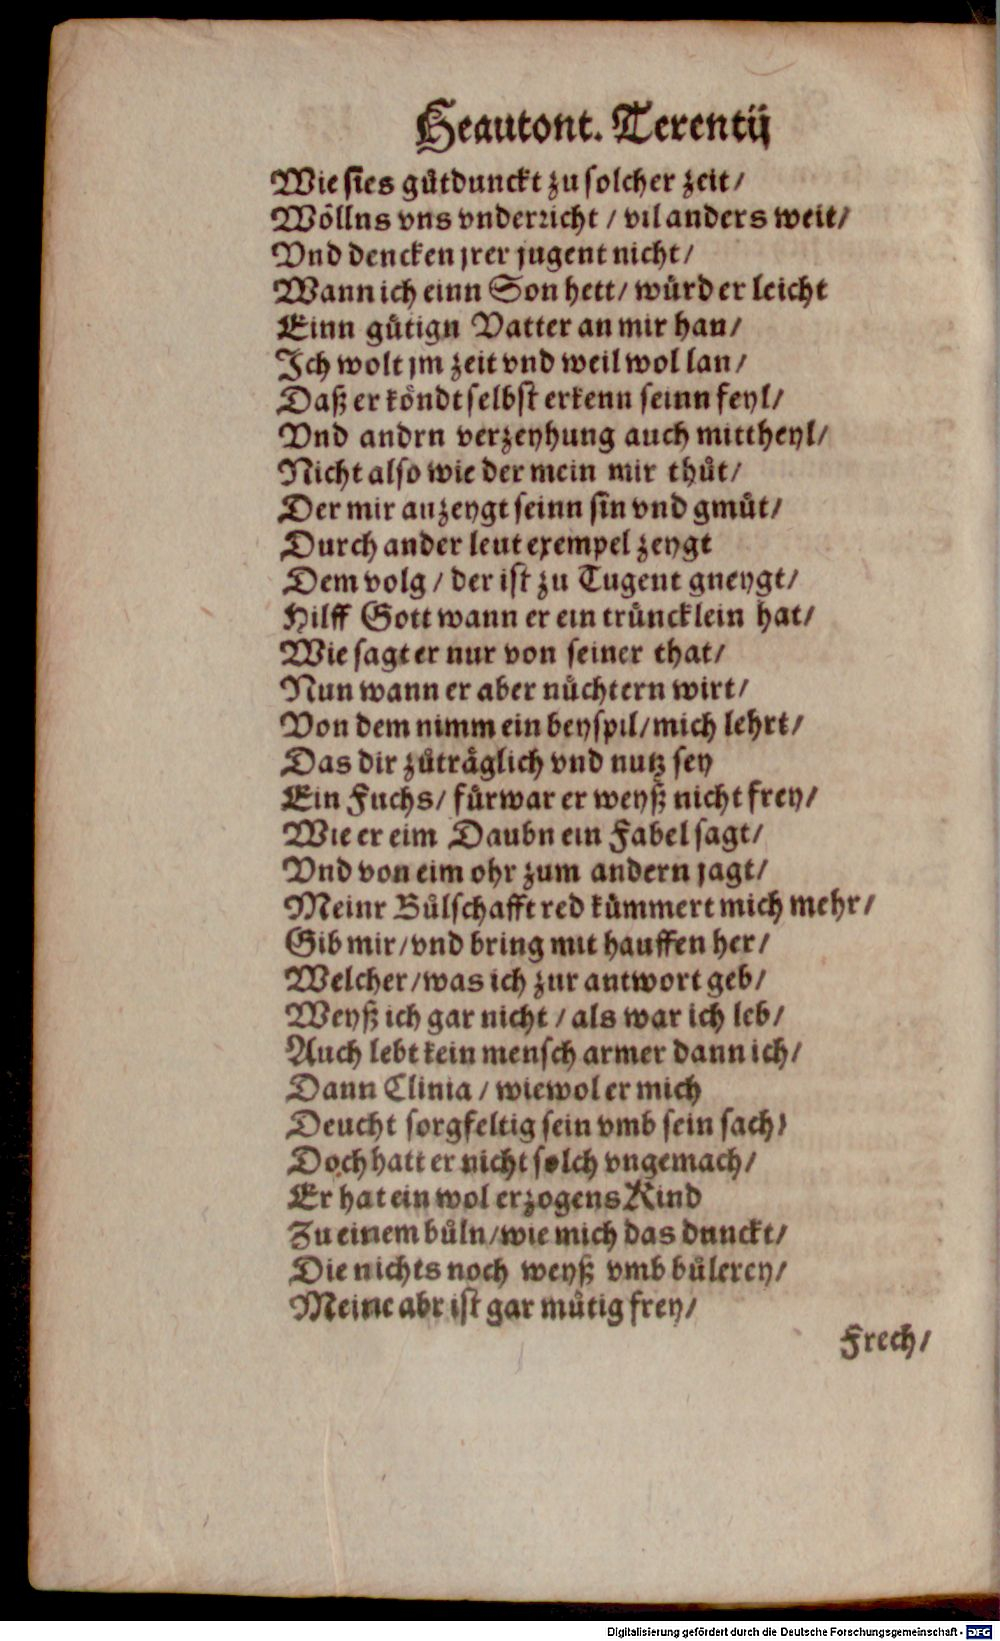 Heautont. Terentij
Wie sies gůtdunckt zu solcher zeit/
Wöllns vns vnderricht / vil anders weit/
Vnd dencken jrer jugent nicht/
Wann ich einn Son hett/ würd er leicht
Einn gütign Vatter an mir han/
Ich wolt jm zeit vnd weil wol lan/
Daß er köndt selbst erkenn seinn feyl/
Vnd andrn verzeyhung auch mittheyl/
Nicht also wie der mein mir thůt/
Der mir anzeygt seinn sin vnd gmůt/
Durch ander leut exempel zeygt
Dem volg / der ist zu Tugent gneygt/
Hilff Gott wann er ein trüncklein hat/
Wie sagt er nur von seiner that/
Nun wann er aber nüchtern wirt/
Von dem nimm ein beyspil/ mich lehrt/
Das dir zůträglich vnd nutz sey
Ein Fuchs/ fürwar er weyß nicht frey/
Wie er eim Daubn ein Fabel sagt/
Vnd von eim ohr zum andern jagt/
Meinr Bůlschafft red kümmert mich mehr/
Gib mir/ vnd bring mit hauffen her/
Welcher/ was ich zur antwort geb/
Weyß ich gar nicht / als war ich leb/
Auch lebt kein mensch armer dann ich/
Dann Clinia / wiewol er mich
Deucht sorgfeltig sein vmb sein sach/
Doch hatt er nicht solch vngemach/
Er hat ein wol erzogens Kind
Zu einem bůln/ wie mich das dunckt/
Die nichts noch weyß vmb bůlerey/
Meine abr ist gar můtig frey/
Frech/
Digitalisierung gefördert durch die Deutsche Forschungsgemeinschaft - DFG